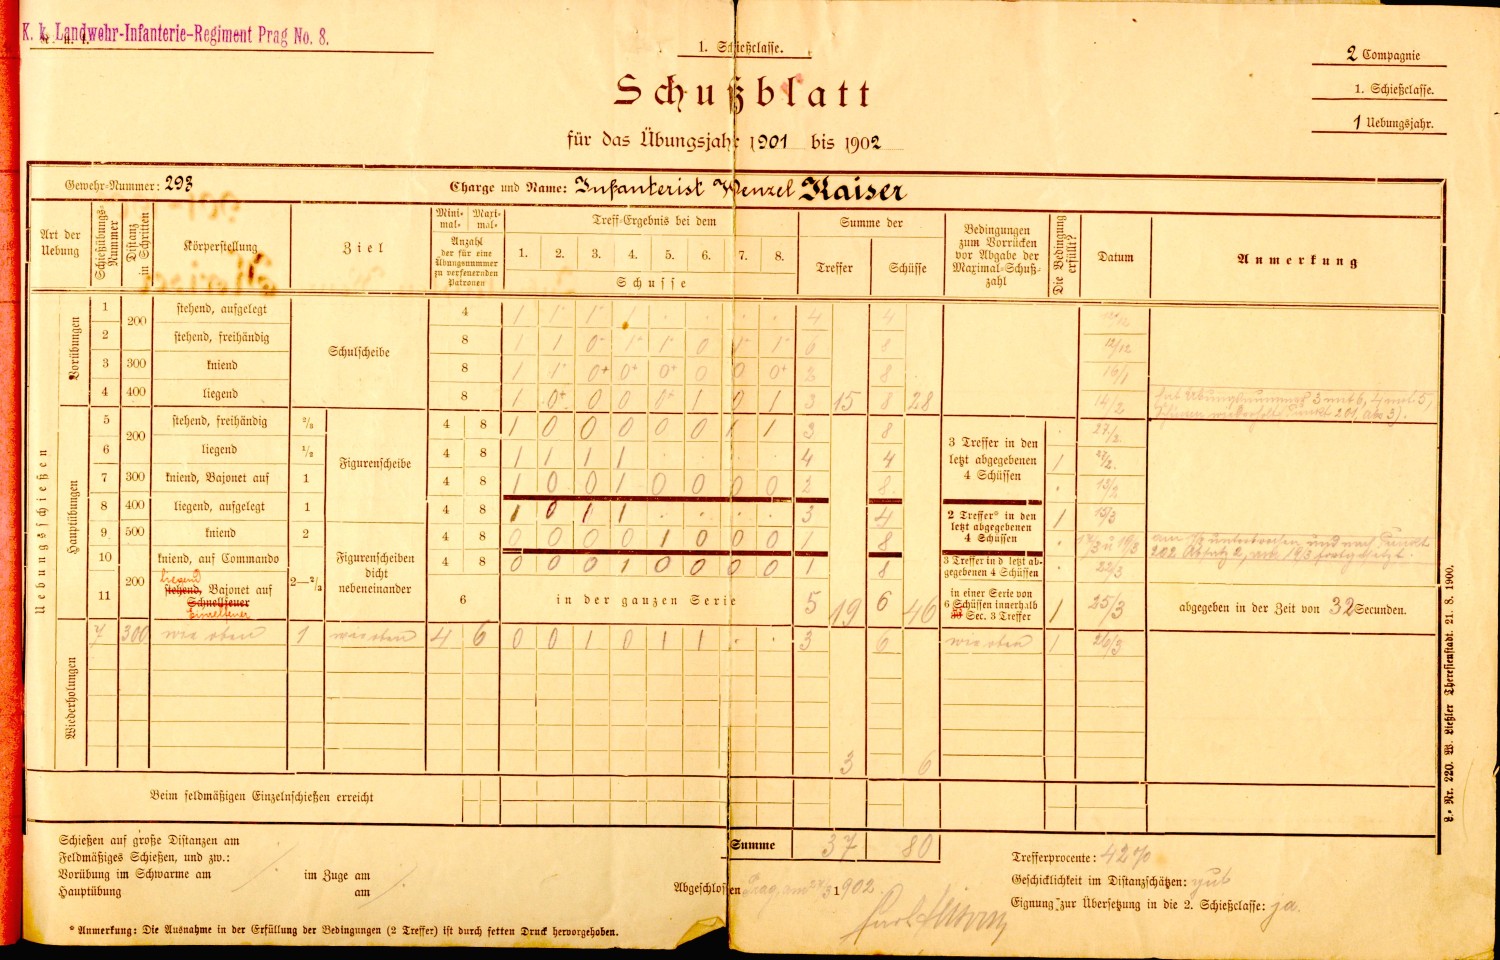 K. k. Landwehr-Infanterie-Regiment Prag No. 8.
1. Schießclasse.
2 Compagnie
1. Schießclasse.
1 Uebungsjahr.
Schußblatt
für das Übungsjahr 1901 bis 1902
Gewehr-Nummer: 293
Charge und Name: Infanterist Wenzel Kaiser
Art der Uebung
Schießübungs-Nummer
Distanz in Schritten
Körperstellung
Ziel
Mini-mal-
Maxi-mal-
Anzahl der für eine Übungsnummer zu verfeuernden Patronen
Treff-Ergebnis bei dem
1. 2. 3. 4. 5. 6. 7. 8.
Schusse
Summe der
Treffer
Schüsse
Bedingungen zum Vorrücken vor Abgabe der Maximal-Schuß-zahl
Die Bedingung erfüllt?
Datum
Anmerkung
Uebungsschießen
Vorübungen
1 200 stehend, aufgelegt Schulscheibe 4 1 1 1 1 . . . . 4 4
2 stehend, freihändig 8 1 1 0 1 1 0 1 1 6 8 12/12
3 300 kniend 8 1 1 0+ 0+ 0+ 0 0 0+ 2 8 16/1
4 400 liegend 8 1 0+ 0 0 0+ 1 0 1 3 15 8 28 14/2
Hauptübungen
5 200 stehend, freihändig 2/3 Figurenscheibe 4 8 1 0 0 0 0 0 1 1 3 8 27/2.
6 liegend 1/2 4 8 1 1 1 1 . . . . 4 4 1
3 Treffer in den letzt abgegebenen 4 Schüssen
7 300 kniend, Bajonet auf 1 4 8 1 0 0 1 0 0 0 0 2 8
8 400 liegend, aufgelegt 1 4 8 1 0 1 1 . . . . 3 4 1 15/3
2 Treffer* in den letzt abgegebenen 4 Schüssen
9 500 kniend 2 Figurenscheiben dicht nebeneinander 4 8 0 0 0 0 1 0 0 0 1 8
10 200 kniend, auf Commando 4 8 0 0 0 1 0 0 0 0 1 8 22/3
3 Treffer in d letzt ab-gegebenen 4 Schüssen
11 liegend stehend, Bajonet auf Schnellfeuer Einzelfeuer 2—2/3 6 in der ganzen Serie 5 19 6 46
in einer Serie von 6 Schüssen innerhalb Sec. 3 Treffer 1 25/3
abgegeben in der Zeit von 32 Secunden.
Wiederholungen
7 300 wie oben 1 wie oben 4 6 0 0 1 0 1 1 . . 3 6 wie oben 1 26/3
3 6
Beim feldmäßigen Einzelnschießen erreicht
Summe 37 80
Schießen auf große Distanzen am
Feldmäßiges Schießen, und zw.:
Vorübung im Schwarme am im Zuge am
Hauptübung am
Abgeschlossen Prag, am 1902.
Trefferprocente: 42%
Geschicklichkeit im Distanzschätzen: gut
Eignung zur Übersetzung in die 2. Schießclasse: ja.
* Anmerkung: Die Ausnahme in der Erfüllung der Bedingungen (2 Treffer) ist durch fetten Druck hervorgehoben.
L.-Nr. 220. W. Ließler Theresienstadt. 21. 8. 1900.